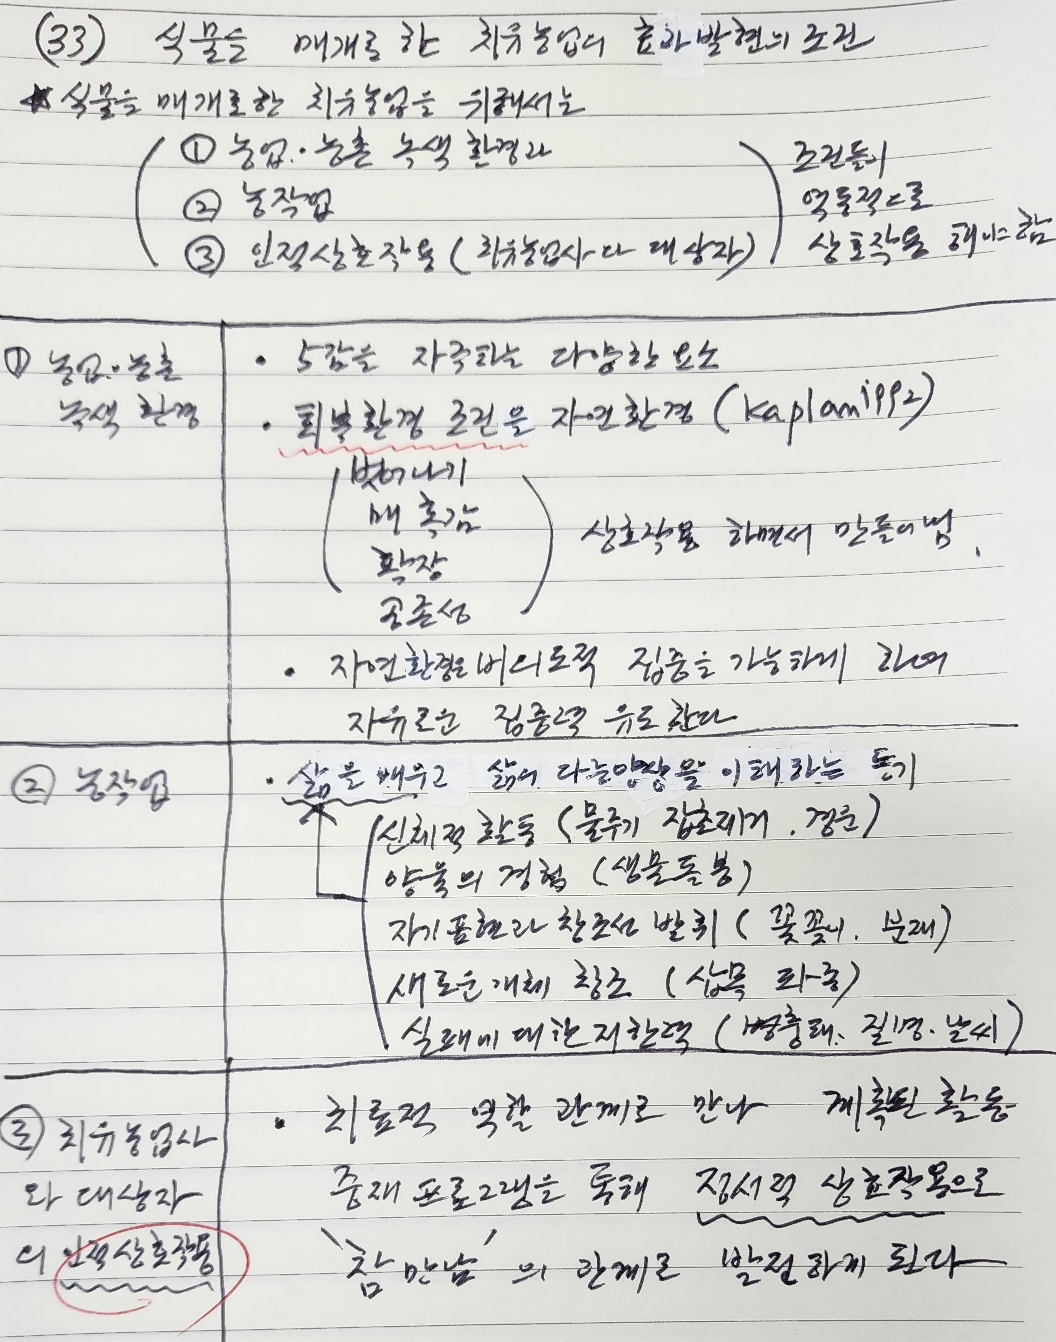 (33) 식물을 매개로 한 치유농업의 효과발현의 조건
★ 식물을 매개로한 치유농업을 위해서는
① 농업·농촌 녹색 환경과
② 농작업
③ 인적상호작용 (치유농업사와 대상자)
조건들이
역동적으로
상호작용 해야 함
① 농업·농촌
녹색 환경
• 5감을 자극하는 다양한 요소
• 회복환경 조건을 자연환경 (Kaplan 1992)
벗어나기
매혹감
확장
공존성
상호작용 하면서 만들어냄.
• 자연환경은 비의도적 집중을 가능하게 하여
자유로운 집중력 유도한다
② 농작업
• 삶을 배우고 삶의 다른양상을 이해하는 동기
신체적 활동 (물주기 잡초제거, 경운)
양육의 경험 (생물돌봄)
자기표현과 창조성 발휘 (꽃꽂이, 분재)
새로운 개체 창조 (삽목 파종)
실패에 대한 저항력 (병충해, 질병, 날씨)
③ 치유농업사
와 대상자
의 인적상호작용
• 치료적 역할 관계로 만나 계획된 활동
중재 프로그램을 통해 정서적 상호작용으로
'참만남'의 관계로 발전하게 된다